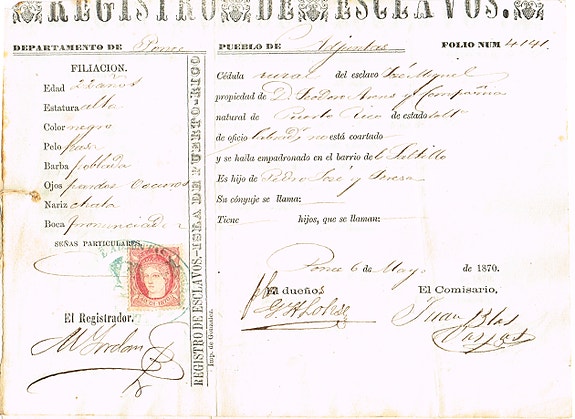 REGISTRO DE ESCLAVOS.
DEPARTAMENTO DE Ponce
PUEBLO DE Adjuntas
FOLIO NUM 4141.
FILIACION.
Edad 22 años
Estatura alta
Color negro
Pelo pasa
Barba poblada
Ojos pardos oscuros
Nariz chata
Boca pronunciada
SEÑAS PARTICULARES
El Registrador.
REGISTRO DE ESCLAVOS.-ISLA DE PUERTO-RICO
Imp. de Gonzalez.
Cédula rural del esclavo José Miguel
propiedad de D. Teodoro y Compañia
natural de Puerto Rico de estado solto
de oficio no está coartado
y se halla empadronado en el barrio de
Es hijo de Pedro José y Teresa
Su cónyuje se llama:
Tiene hijos, que se llaman:
Ponce 6 de Mayo de 1870.
El dueño,
El Comisario,
Juan Blas